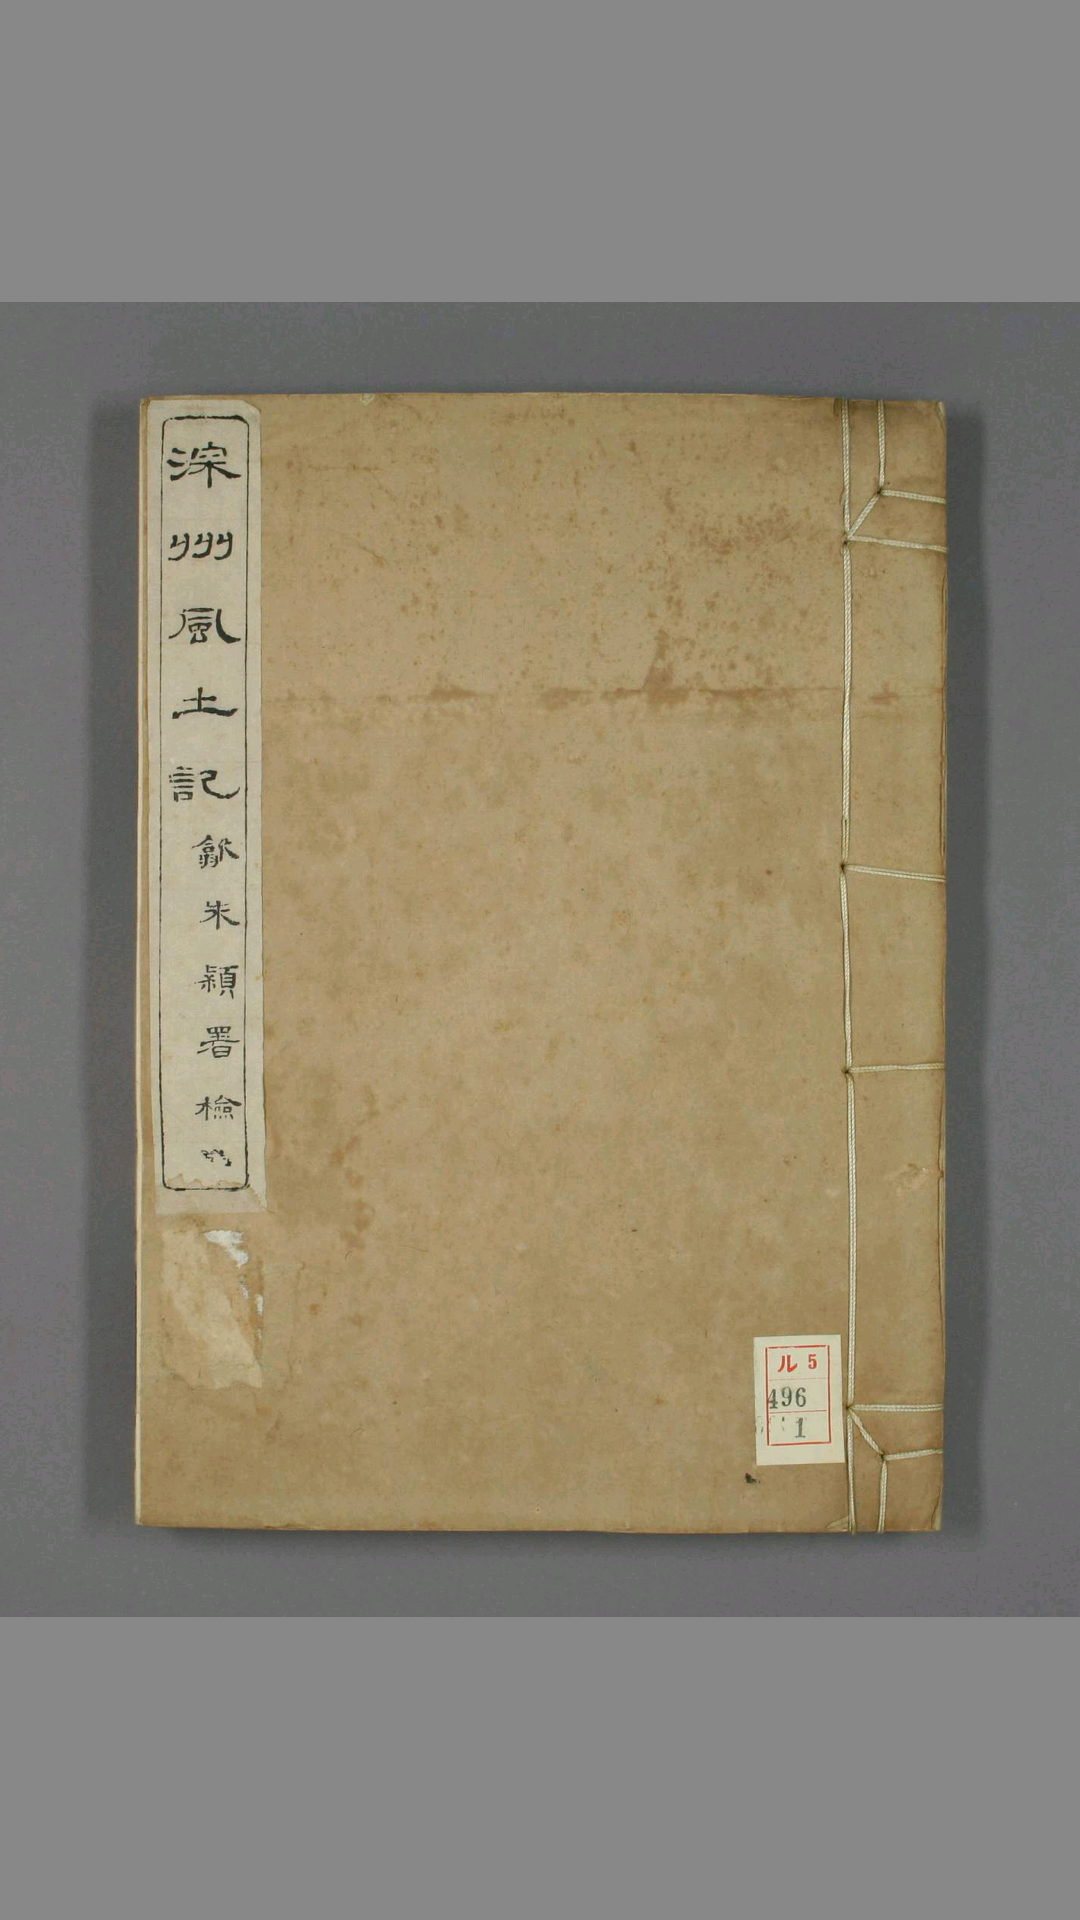 深州風土記
朱穎署檢
ル 5
496
1